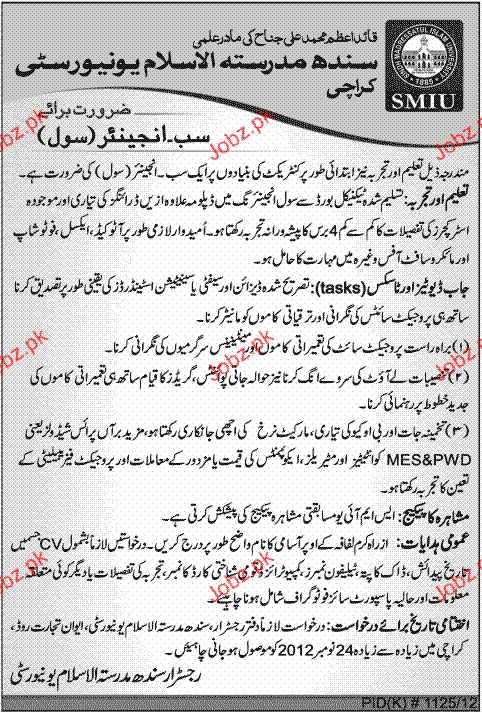 قائد اعظم محمد علی جناح کی مادر علمی
سندھ مدرستہ الاسلام یونیورسٹی
کراچی
SINDH MADRESSATUL ISLAM UNIVERSITY
1885
SMIU
ضرورت برائے
سب۔انجینئر (سول)
مندرجہ ذیل تعلیم اور تجربہ نیز ابتدائی طور پر کنٹریکٹ کی بنیادوں پر ایک سب۔انجینئر (سول) کی ضرورت ہے۔
تعلیم اور تجربہ: تسلیم شدہ ٹیکنیکل بورڈ سے سول انجینئرنگ میں ڈپلومہ علاوہ ازیں ڈرائنگز کی تیاری اور موجودہ
اسٹرکچرز کی تفصیلات کا کم سے کم 4 برس کا پیشہ ورانہ تجربہ رکھتا ہو۔ اُمیدوار لازمی طور پر آٹو کیڈ، ایکسل، فوٹو شاپ
اور مائکروسافٹ آفس وغیرہ میں مہارت کا حامل ہو۔
جاب ڈیوٹیز اور ٹاسکس (tasks): تصریح شدہ ڈیزائن اور سیفٹی یا سینیٹیشن اسٹینڈرڈز کی یقینی طور پر تصدیق کرنا
ساتھ ہی پروجیکٹ سائٹس کی نگرانی اور ترقیاتی کاموں کو مانیٹر کرنا۔
(۱) براہ راست پروجیکٹ سائٹ کی تعمیراتی کاموں اور مینٹیننس سرگرمیوں کی نگرانی کرنا۔
(۲) تنصیبات لے آؤٹ کی سروے انگ کرنا نیز حوالہ جاتی پوائنٹس، گریڈز کا قیام ساتھ ہی تعمیراتی کاموں کی
جدید خطوط پر رہنمائی کرنا۔
(۳) تخمینہ جات اور بی او کیو کی تیاری، مارکیٹ نرخ کی اچھی جانکاری رکھتا ہو، مزید برآں پرائس شیڈولز یعنی
MES&PWD کوانٹیٹیز اور مٹیریلز، ایکوپمنٹس کی قیمت یا مزدور کے معاملات اور پروجیکٹ فیزیبلیٹی کے
تعین کا تجربہ رکھتا ہو۔
مشاہرہ کا پیکیج: ایس ایم آئی یو مسابقتی مشاہرہ پیکیج کی پیشکش کرتی ہے۔
عمومی ہدایات: ازراہ کرم لفافہ کے اوپر آسامی کا نام واضح طور پر درج کریں۔ درخواستیں لازماً بشمول CV جسمیں
تاریخ پیدائش، ڈاک کا پتہ، ٹیلیفون نمبرز، کمپیوٹرائزڈ قومی شناختی کارڈ کا نمبر، تجربہ کی تفصیلات یا دیگر کوئی متعلقہ
معلومات اور حالیہ پاسپورٹ سائز فوٹوگراف شامل ہونا چاہیئے۔
اختتامی تاریخ برائے درخواست: درخواست لازماً دفتر رجسٹرار، سندھ مدرستہ الاسلام یونیورسٹی، ایوان تجارت روڈ،
کراچی میں زیادہ سے زیادہ 24 نومبر 2012 کو موصول ہو جانی چاہیئں۔
رجسٹرار سندھ مدرستہ الاسلام یونیورسٹی
PID(K) # 1125/12